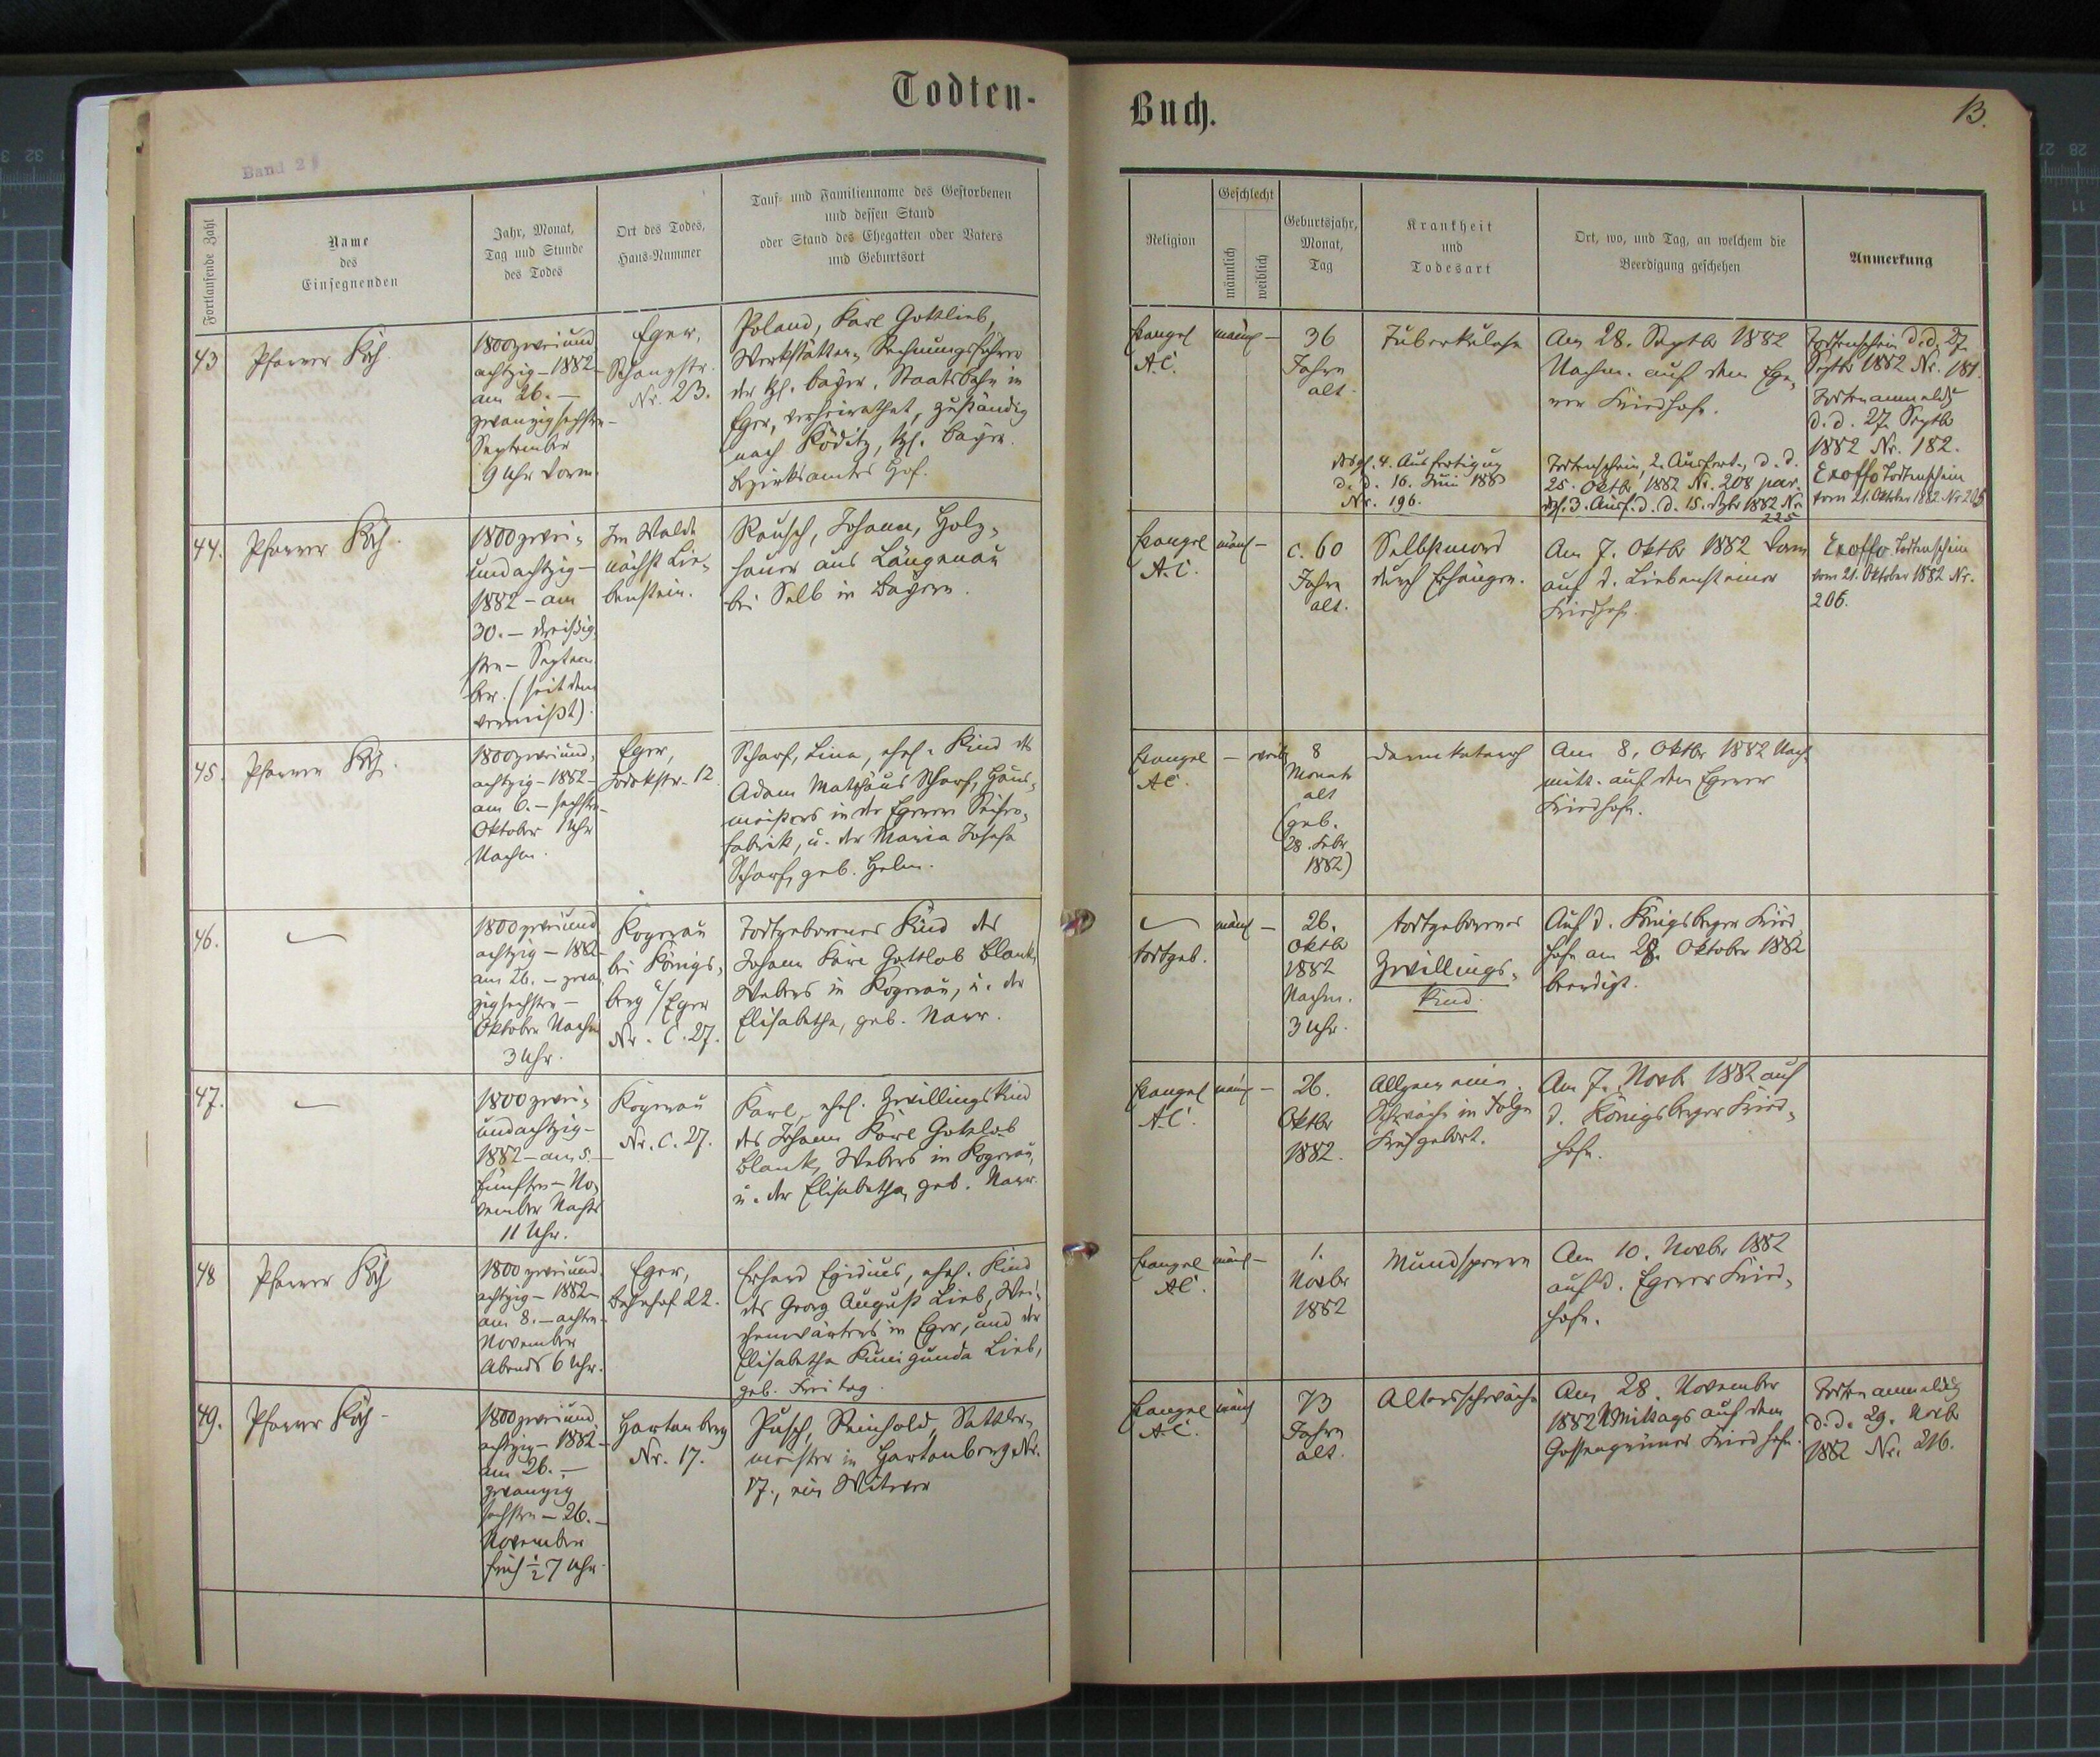 Todten-
Band 2
Fortlaufende Zahl
Name
des
Einsegnenden
Jahr, Monat,
Tag und Stunde
des Todes
Ort des Todes,
Haus-Nummer
Tauf- und Familienname des Gestorbenen
und dessen Stand
oder Stand des Ehegatten oder Vaters
und Geburtsort
43
Pfarrer Koch
1800zweiund
achtzig – 1882 –
am 26. –
zwanzigsechsten –
September
9 Uhr Vorm.
Eger,
Schanzstr.
Nr. 23.
Poland, Karl Gottlieb,
Werkstätten-Rechnungsführer
der kgl. bayer. Staatsbahn in
Eger, verheirathet, zuständig
nach Köditz, kgl. bayer.
Bezirksamtes Hof.
44.
Pfarrer Koch.
1800zwei-
undachtzig –
1882 – am
30. – dreißig-
sten – Septem-
ber. (seitdem
vermißt).
Im Walde
nächst Lie-
benstein.
Rausch, Johann, Holz-
hauer aus Längenau
bei Selb in Bayern.
45.
Pfarrer Koch.
1800zweiund-
achtzig – 1882 –
am 6. – sechsten –
Oktober 1 Uhr
Nachm.
Eger,
Jodokstr. 12
Scharf, Lina, ehel. Kind des
Adam Matthäus Scharf, Haus-
meisters in der Egerer Seifen-
fabrik, u. der Maria Josefa
Scharf, geb. Helm.
46.
1800zweiund
achtzig – 1882 –
am 26. – zwan-
zigsechsten –
Oktober Nachm
3 Uhr.
Kogerau
bei Königs-
berg a/Eger
Nr. C. 27.
Todtgeborenes Kind des
Johann Karl Gottlob Blank,
Webers in Kogerau, u. der
Elisabetha, geb. Narr.
47.
1800zwei-
undachtzig –
1882 – am 5. –
fünften – No-
vember Nachts
11 Uhr.
Kogerau
Nr. C. 27.
Karl, ehel. Zwillingskind
des Johann Karl Gottlob
Blank, Webers in Kogerau,
u. der Elisabetha, geb. Narr.
48
Pfarrer Koch
1800zweiund-
achtzig – 1882 –
am 8. – achten –
November
Abends 6 Uhr.
Eger,
Bahnhof 22.
Erhard Egidius, ehel. Kind
des Georg August Lieb, Wei-
chenwärters in Eger, und der
Elisabetha Kunigunda Lieb,
geb. Freitag.
49.
Pfarrer Koch –
1800zweiund
achtzig – 1882 –
am 26. –
zwanzig
sechsten – 26. –
November
früh ½ 7 Uhr.
Hartenberg
Nr. 17.
Pusch, Reinhold, Sattler-
meister in Hartenberg Nr.
17., ein Witwer
Buch.
13.
Religion
Geschlecht
männlich
weiblich
Geburtsjahr,
Monat,
Tag
Krankheit
und
Todesart
Ort, wo, und Tag, an welchem die
Beerdigung geschehen
Anmerkung
Evangel
A.C.
männl –
36
Jahre
alt.
Tuberkulose
Am 28. Septbr 1882
Nachm. auf dem Ege-
rer Friedhofe.
Todtenschein d. d. 27.
Septbr 1882 Nr. 181.
Todtenanmeldg
d. d. 27. Septbr
1882 Nr. 182.
Exoffo Todtenschein
vom 21. Oktober 1882 Nr 205
desgl. 4. Ausfertigung
d. d. 16. Juni 188
Nr. 196.
Todtenschein, 2. Ausfert., d. d.
25. Oktbr 1882 Nr. 208
dsgl. 3. Ausf. d. d. 15. Dzbr 1882 Nr
225
Evangel
A.C.
männl –
c. 60
Jahre
alt.
Selbstmord
durch Erhängen.
Am 7. Oktbr 1882 Vorm
auf d. Liebensteiner
Friedhofe.
Exoffo Todtenschein
vom 21. Oktober 1882 Nr.
206.
Evangel
A.C.
– weibl
8
Monate
alt
(geb.
28. Febr
1882)
Darmkatarrh
Am 8. Oktbr 1882 Nach-
mitt. auf dem Egerer
Friedhofe.
todtgeb.
männl –
26.
Oktbr
1882
Nachm.
3 Uhr.
todtgeborenes
Zwillings-
kind.
Auf d. Königsberger Fried-
hofe am 28. Oktober 1882
beerdigt.
Evangel
A.C.
männl –
26.
Oktbr
1882.
Allgemeine
Schwäche in Folge
Frühgeburt.
Am 7. Novb 1882 auf
d. Königsberger Fried-
hofe.
Evangel
A.C.
männl –
1.
Novbr
1882
Mundsperre
Am 10. Novbr 1882
auf d. Egerer Fried-
hofe.
Evangel
A.C.
männl
73
Jahre
alt.
Altersschwäche
Am 28. November
1882 Mittags auf dem
Gossengrüner Friedhofe.
Todtenanmeldg
d. d. 29. Novb
1882 Nr. 216.